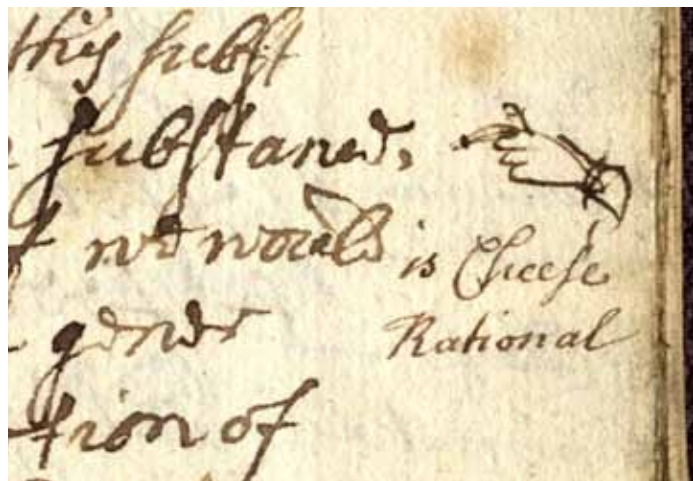 this subst
substance,
we would
is Cheese
Rational
gener
tion of